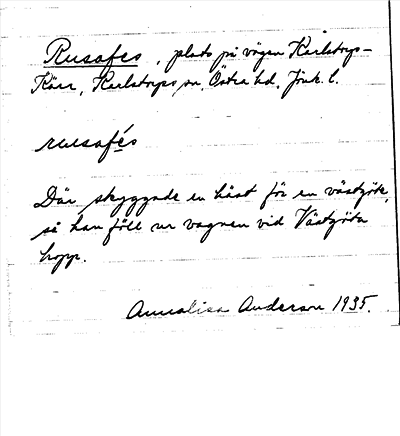 Rusafes, plats på vägen Karlstorps-
Kärr, Karlstorps sn, Östra hd. Jönk. l.
rusafés
Där skyggade en häst för en västgöte,
så han föll ur vagnen vid Västgöta
hopp.
Annalisa Anderson 1935.